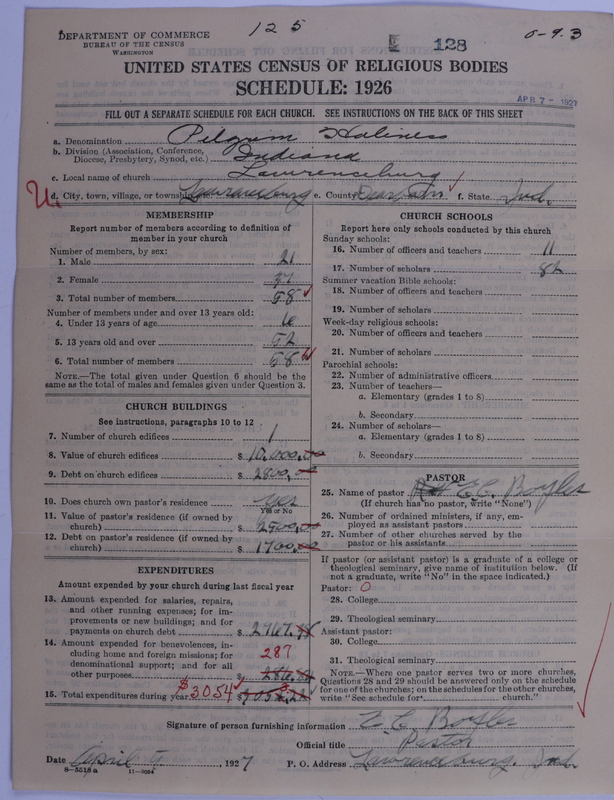 DEPARTMENT OF COMMERCE
BUREAU OF THE CENSUS
WASHINGTON
125
128
0-9.3
UNITED STATES CENSUS OF RELIGIOUS BODIES
SCHEDULE: 1926
APR 7 - 1927
FILL OUT A SEPARATE SCHEDULE FOR EACH CHURCH. SEE INSTRUCTIONS ON THE BACK OF THIS SHEET
a. Denomination Pilgrim Holiness
b. Division (Association, Conference, Diocese, Presbytery, Synod, etc.) Indiana
c. Local name of church Lawrenceburg
d. City, town, village, or township Lawrenceburg e. County Dearborn f. State Ind.
MEMBERSHIP
Report number of members according to definition of
member in your church
Number of members, by sex:
1. Male 21
2. Female 37
3. Total number of members 58
Number of members under and over 13 years old:
4. Under 13 years of age 6
5. 13 years old and over 52
6. Total number of members 58
NOTE.—The total given under Question 6 should be
same as the total of males and females given under Question 3.
CHURCH BUILDINGS
See instructions, paragraphs 10 to 12
7. Number of church edifices 1
8. Value of church edifices $ 10,000.00
9. Debt on church edifices $ 2800.00
10. Does church own pastor's residence yes
Yes or No
11. Value of pastor's residence (if owned by
church) $ 2500.00
12. Debt on pastor's residence (if owned by
church) $ 1700.00
EXPENDITURES
Amount expended by your church during last fiscal year
13. Amount expended for salaries, repairs,
and other running expenses; for im-
provements or new buildings; and for
payments on church debt $ 2767.
14. Amount expended for benevolences, in-
cluding home and foreign missions; for
denominational support; and for all
other purposes $ 287
15. Total expenditures during year $3054
CHURCH SCHOOLS
Report here only schools conducted by this church
Sunday schools:
16. Number of officers and teachers 11
17. Number of scholars 82
Summer vacation Bible schools:
18. Number of officers and teachers
19. Number of scholars
Week-day religious schools:
20. Number of officers and teachers
21. Number of scholars
Parochial schools:
22. Number of administrative officers
23. Number of teachers—
a. Elementary (grades 1 to 8)
b. Secondary
24. Number of scholars—
a. Elementary (grades 1 to 8)
b. Secondary
PASTOR
25. Name of pastor
(If church has no pastor, write "None")
26. Number of ordained ministers, if any, em-
ployed as assistant pastors
27. Number of other churches served by the
pastor or his assistants
If pastor (or assistant pastor) is a graduate of a college or
theological seminary, give name of institution below. (If
not a graduate, write "No" in the space indicated.)
Pastor: O
28. College
29. Theological seminary
Assistant pastor:
30. College
31. Theological seminary
NOTE.—Where one pastor serves two or more churches,
Questions 28 and 29 should be answered only on the schedule
for one of the churches; on the schedules for the other churches,
write "See schedule for church."
Signature of person furnishing information
Official title Pastor
Date April 1927 P. O. Address Lawrenceburg, Ind.
8-5518a 11-9084